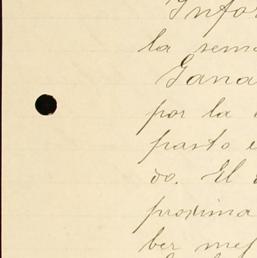 Infor
la sem
Gana
por la
pasto e
do. El
proxima
ber mej